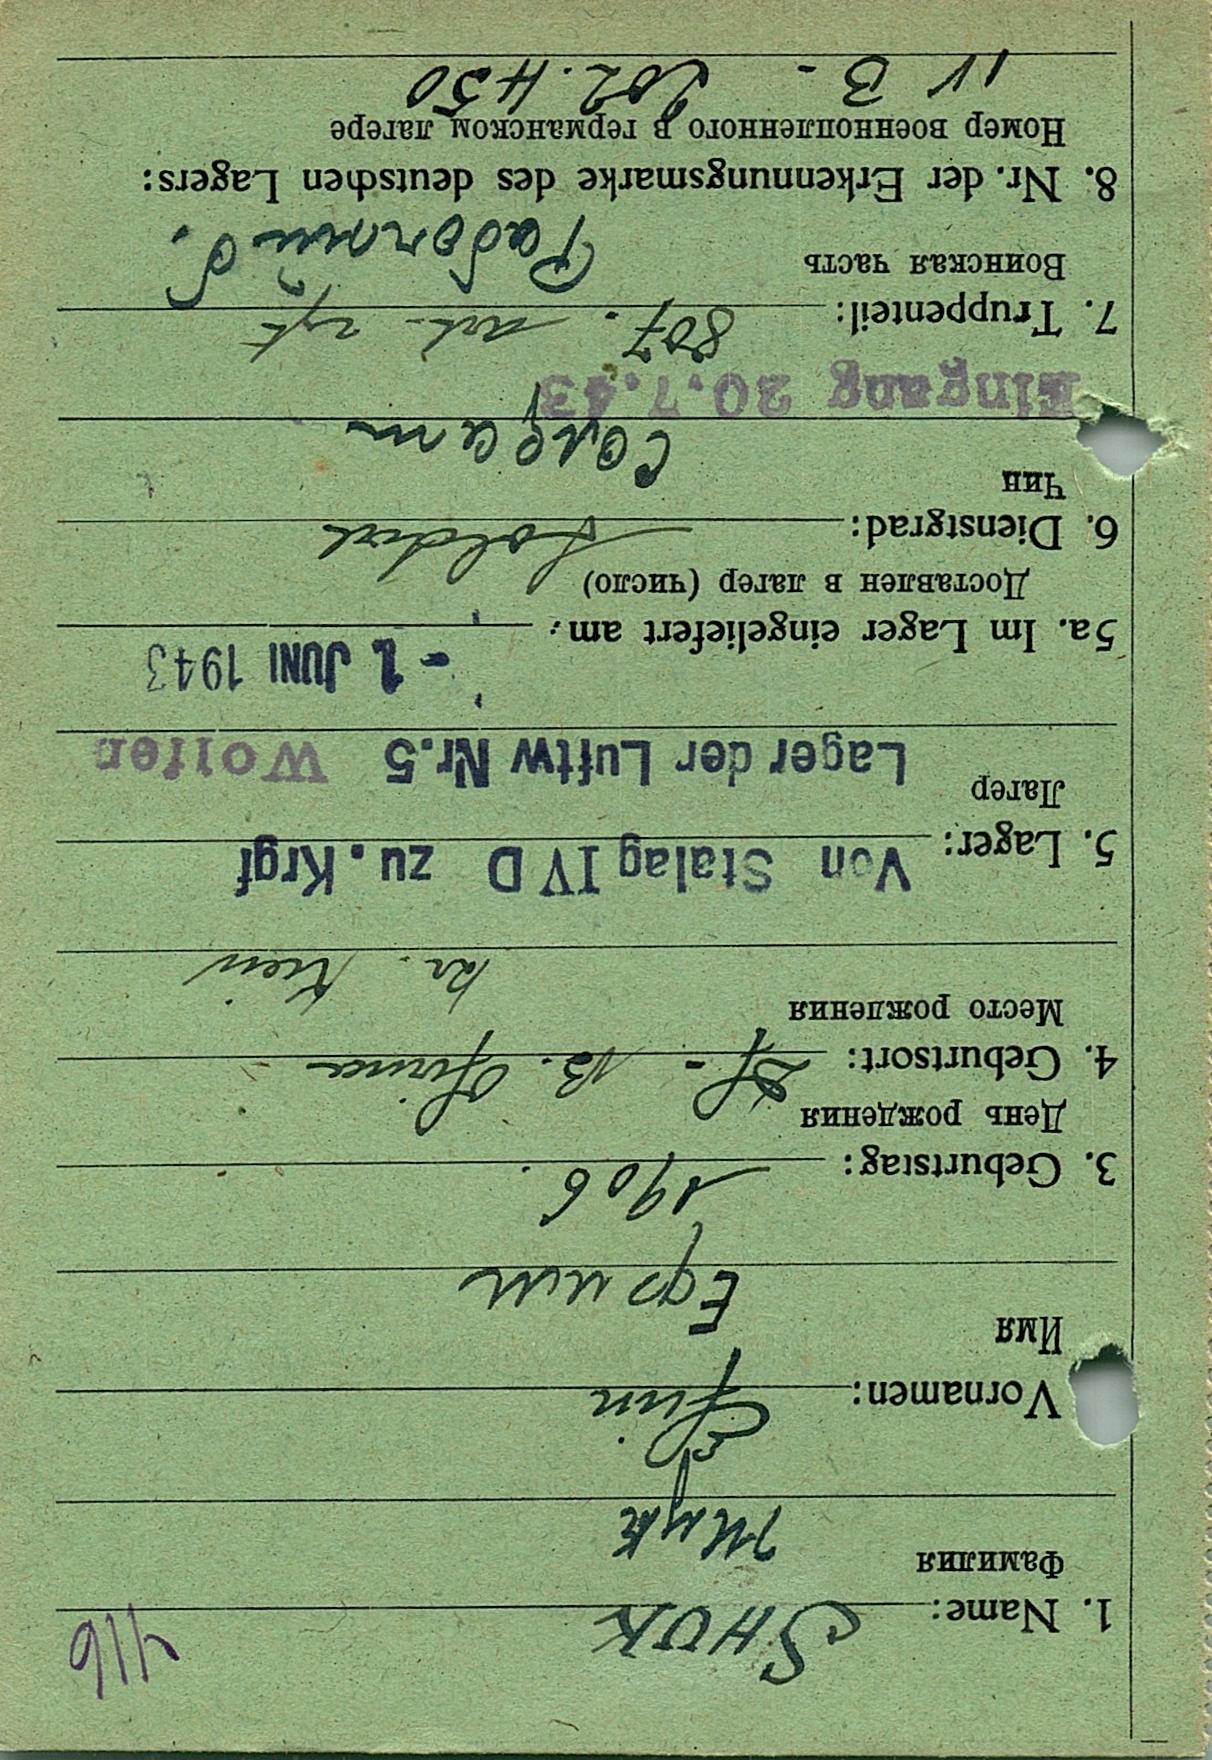 116
1. Name: SHUK
Фамилия
Жук
Vornamen: Efim
Имя
Ефим
3. Geburtstag: 1906.
День рождения
4. Geburtsort:
Место рождения
kr. Kiew
Von Stalag IV D zu. Krgf
5. Lager:
Лагер
Lager der Luftw Nr.5 Wolfen
- 1. JUNI 1943
5a. Im Lager eingeliefert am:
Доставлен в лагер (число)
6. Dienstgrad: Soldat
Чин
Солдат
Eingang 20.7.43
7. Truppenteil: 807.
Воинская часть
8. Nr. der Erkennungsmarke des deutschen Lagers:
Номер военнопленного в германском лагере
IV B - 202.450